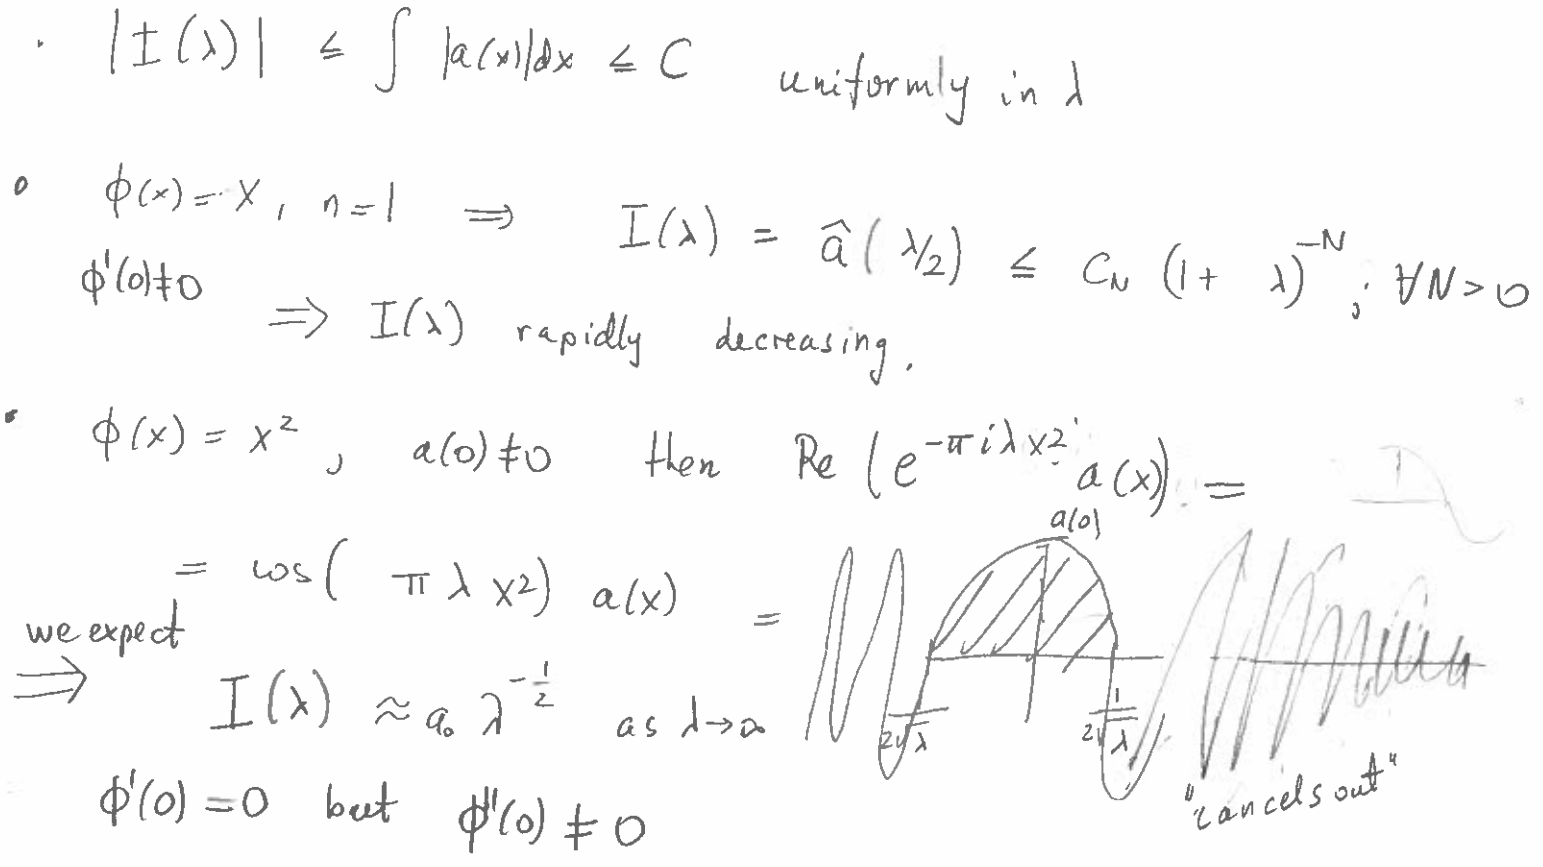 · |I(λ)| ≤ ∫ |a(x)|dx ≤ C uniformly in λ
∘ φ(x) = x, n=1 ⟹ I(λ) = â(λ/2) ≤ C_N (1+ λ)^{-N}; ∀N>0
φ'(0)≠0 ⟹ I(λ) rapidly decreasing.
• φ(x) = x², a(0)≠0 then Re(e^{-πiλx²} a(x)) =
= cos(πλx²) a(x) =
a(0)
we expect
⟹ I(λ) ≈ a₀ λ^{-1/2} as λ→∞
1/(2√λ) 1/(2√λ)
"cancels out"
φ'(0) = 0 but φ''(0) ≠ 0